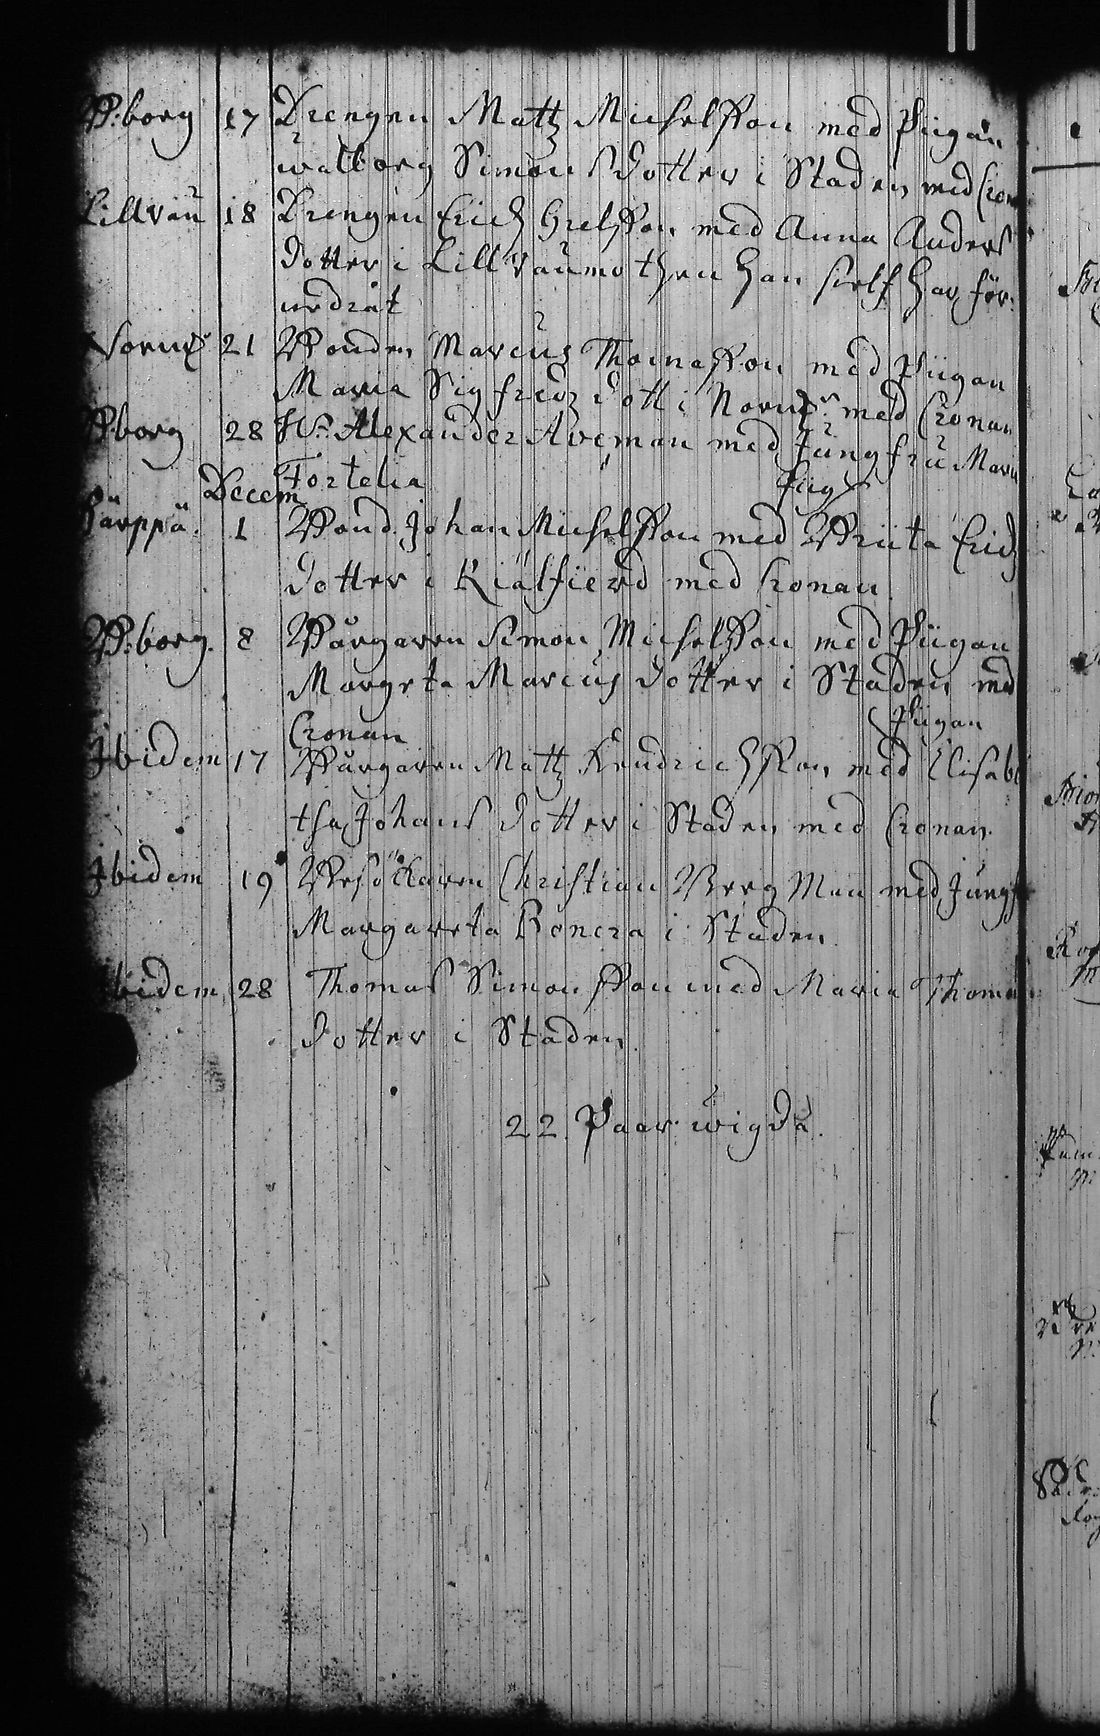 B:borg 17 Drengen Matz Michelsson med Pigan
Walborg Simons dotter i Staden med Cron
Lillrau 18 Drengen Erich Grelsson med Anna Anders
dotter i Lillraumo then han sielf har för
Normk 21 Bonden Marcus Thomasson med Pigan
Maria Sigfredz dott i Normk med Cronan
B:borg 28 Hr Alexander Aveman med Jungfru Maria
Fortelia
Decem
Pig
Särppä 1 Bond. Johan Michelsson med Briita Erichz
dotter i Kiälfierd med Cronan
B:borg. 8 Borgaren Simon Michelsson med Pigan
Margeta Marcus dotter i Staden med
Cronan
Pigan
Ibidem 17 Borgaren Matz Hendrichsson med Elisabe
tha Johans dotter i Staden med Cronan
Ibidem 19 Besökaren Christian Berg Man med Jungf
Margareta Boncra i Staden
Ibidem 28 Thomas Simonsson med Maria Thomas
dotter i Staden
22 Paar wigda.